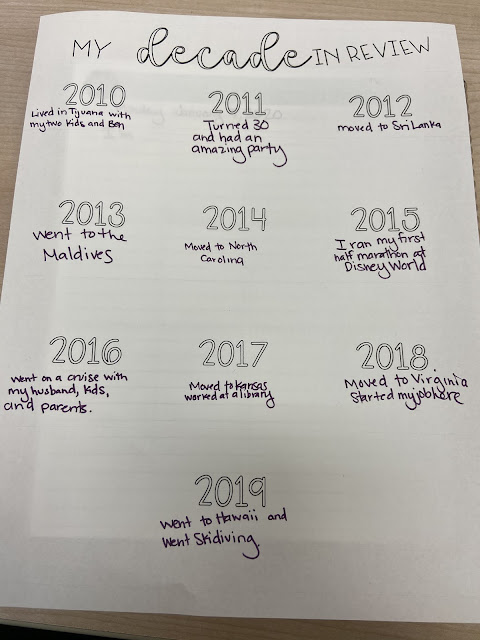 MY decade IN REVIEW
2010
Lived in Tijuana with
my two kids and Ben
2011
Turned 30
and had an
amazing party
2012
moved to Sri Lanka
2013
went to the
Maldives
2014
Moved to North
Carolina
2015
I ran my first
half marathon at
Disney World
2016
went on a cruise with
my husband, kids,
and parents.
2017
Moved to Kansas
worked at a library
2018
Moved to Virginia
started my job here
2019
went to Hawaii and
went Skidiving.